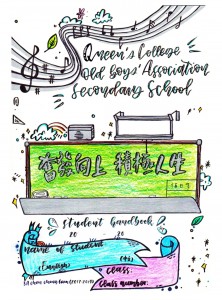 Queen's College
Old Boys' Association
Secondary School
奮發向上 積極人生
Student Handbook
20 20
name of student
(English)
class:
class number: